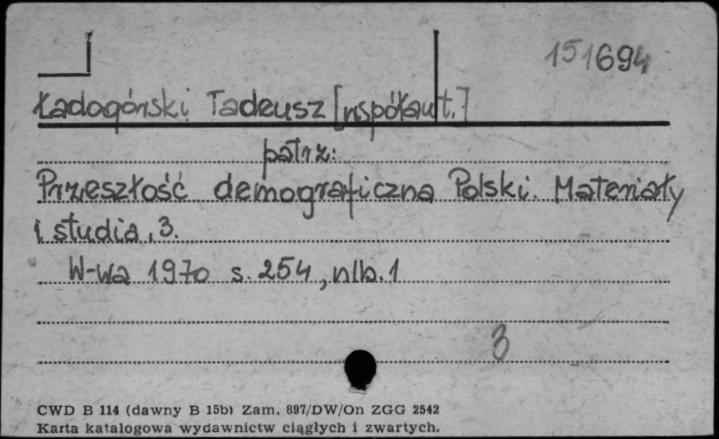 151694
Ładogórski Tadeusz [współaut.]
patrz:
Przeszłość demograficzna Polski. Materiały
i studia, 3.
W-wa 1970 s. 254, nlb. 1
3
CWD B 114 (dawny B 15b) Zam. 897/DW/On ZGG 2542
Karta katalogowa wydawnictw ciągłych i zwartych.